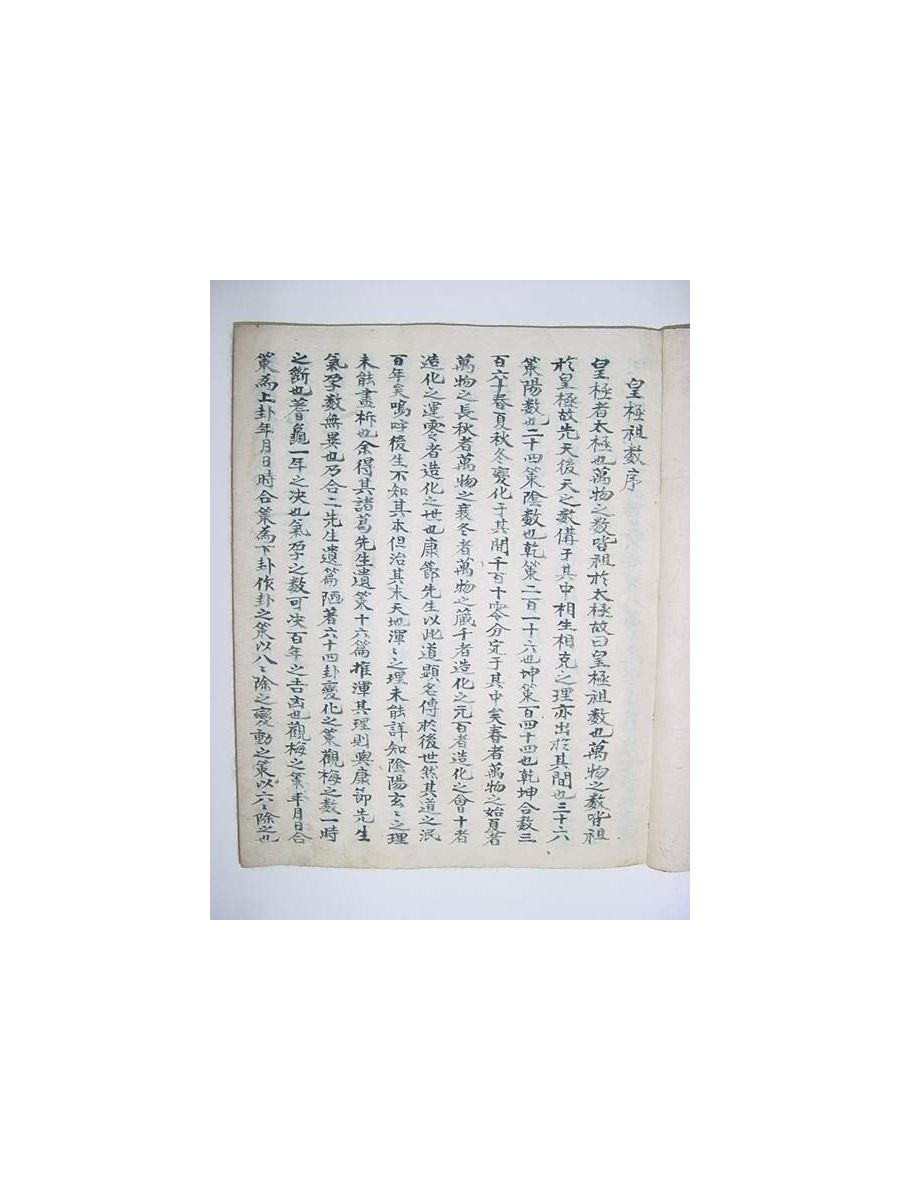 皇極祖數序
皇極者太極也萬物之数皆祖於太極故曰皇極祖数也萬物之数皆祖
於皇極故先天後天之数俻于其中相生相克之理亦出於其間也三十六
策陽数也二十四策陰数也乾策二百一十六也坤策百四十四也乾坤合数三
百六十春夏秋冬變化于其間千百十零分定于其中矣春者萬物之始夏者
萬物之長秋者萬物之衰冬者萬物之藏千者造化之元百者造化之會十者
造化之運零者造化之世也康節先生以此道顕名傳於後世然其道之泯
百年矣嗚呼後生不知其本但治其末天地渾〻之理未能詳知陰陽玄〻之理
未能盡柝也余得其諸葛先生遺策十六篇推渾其理則與康節先生
氣孕数無異也乃合二先生遺篇陋著六十四卦變化之策觀梅之数一時
之斷也蓍龜一年之决也氣孕之数可决百年之吉凶也觀梅之策年月日合
策為上卦年月日時合策為下卦作卦之策以八〻除之變動之策以六〻除之也